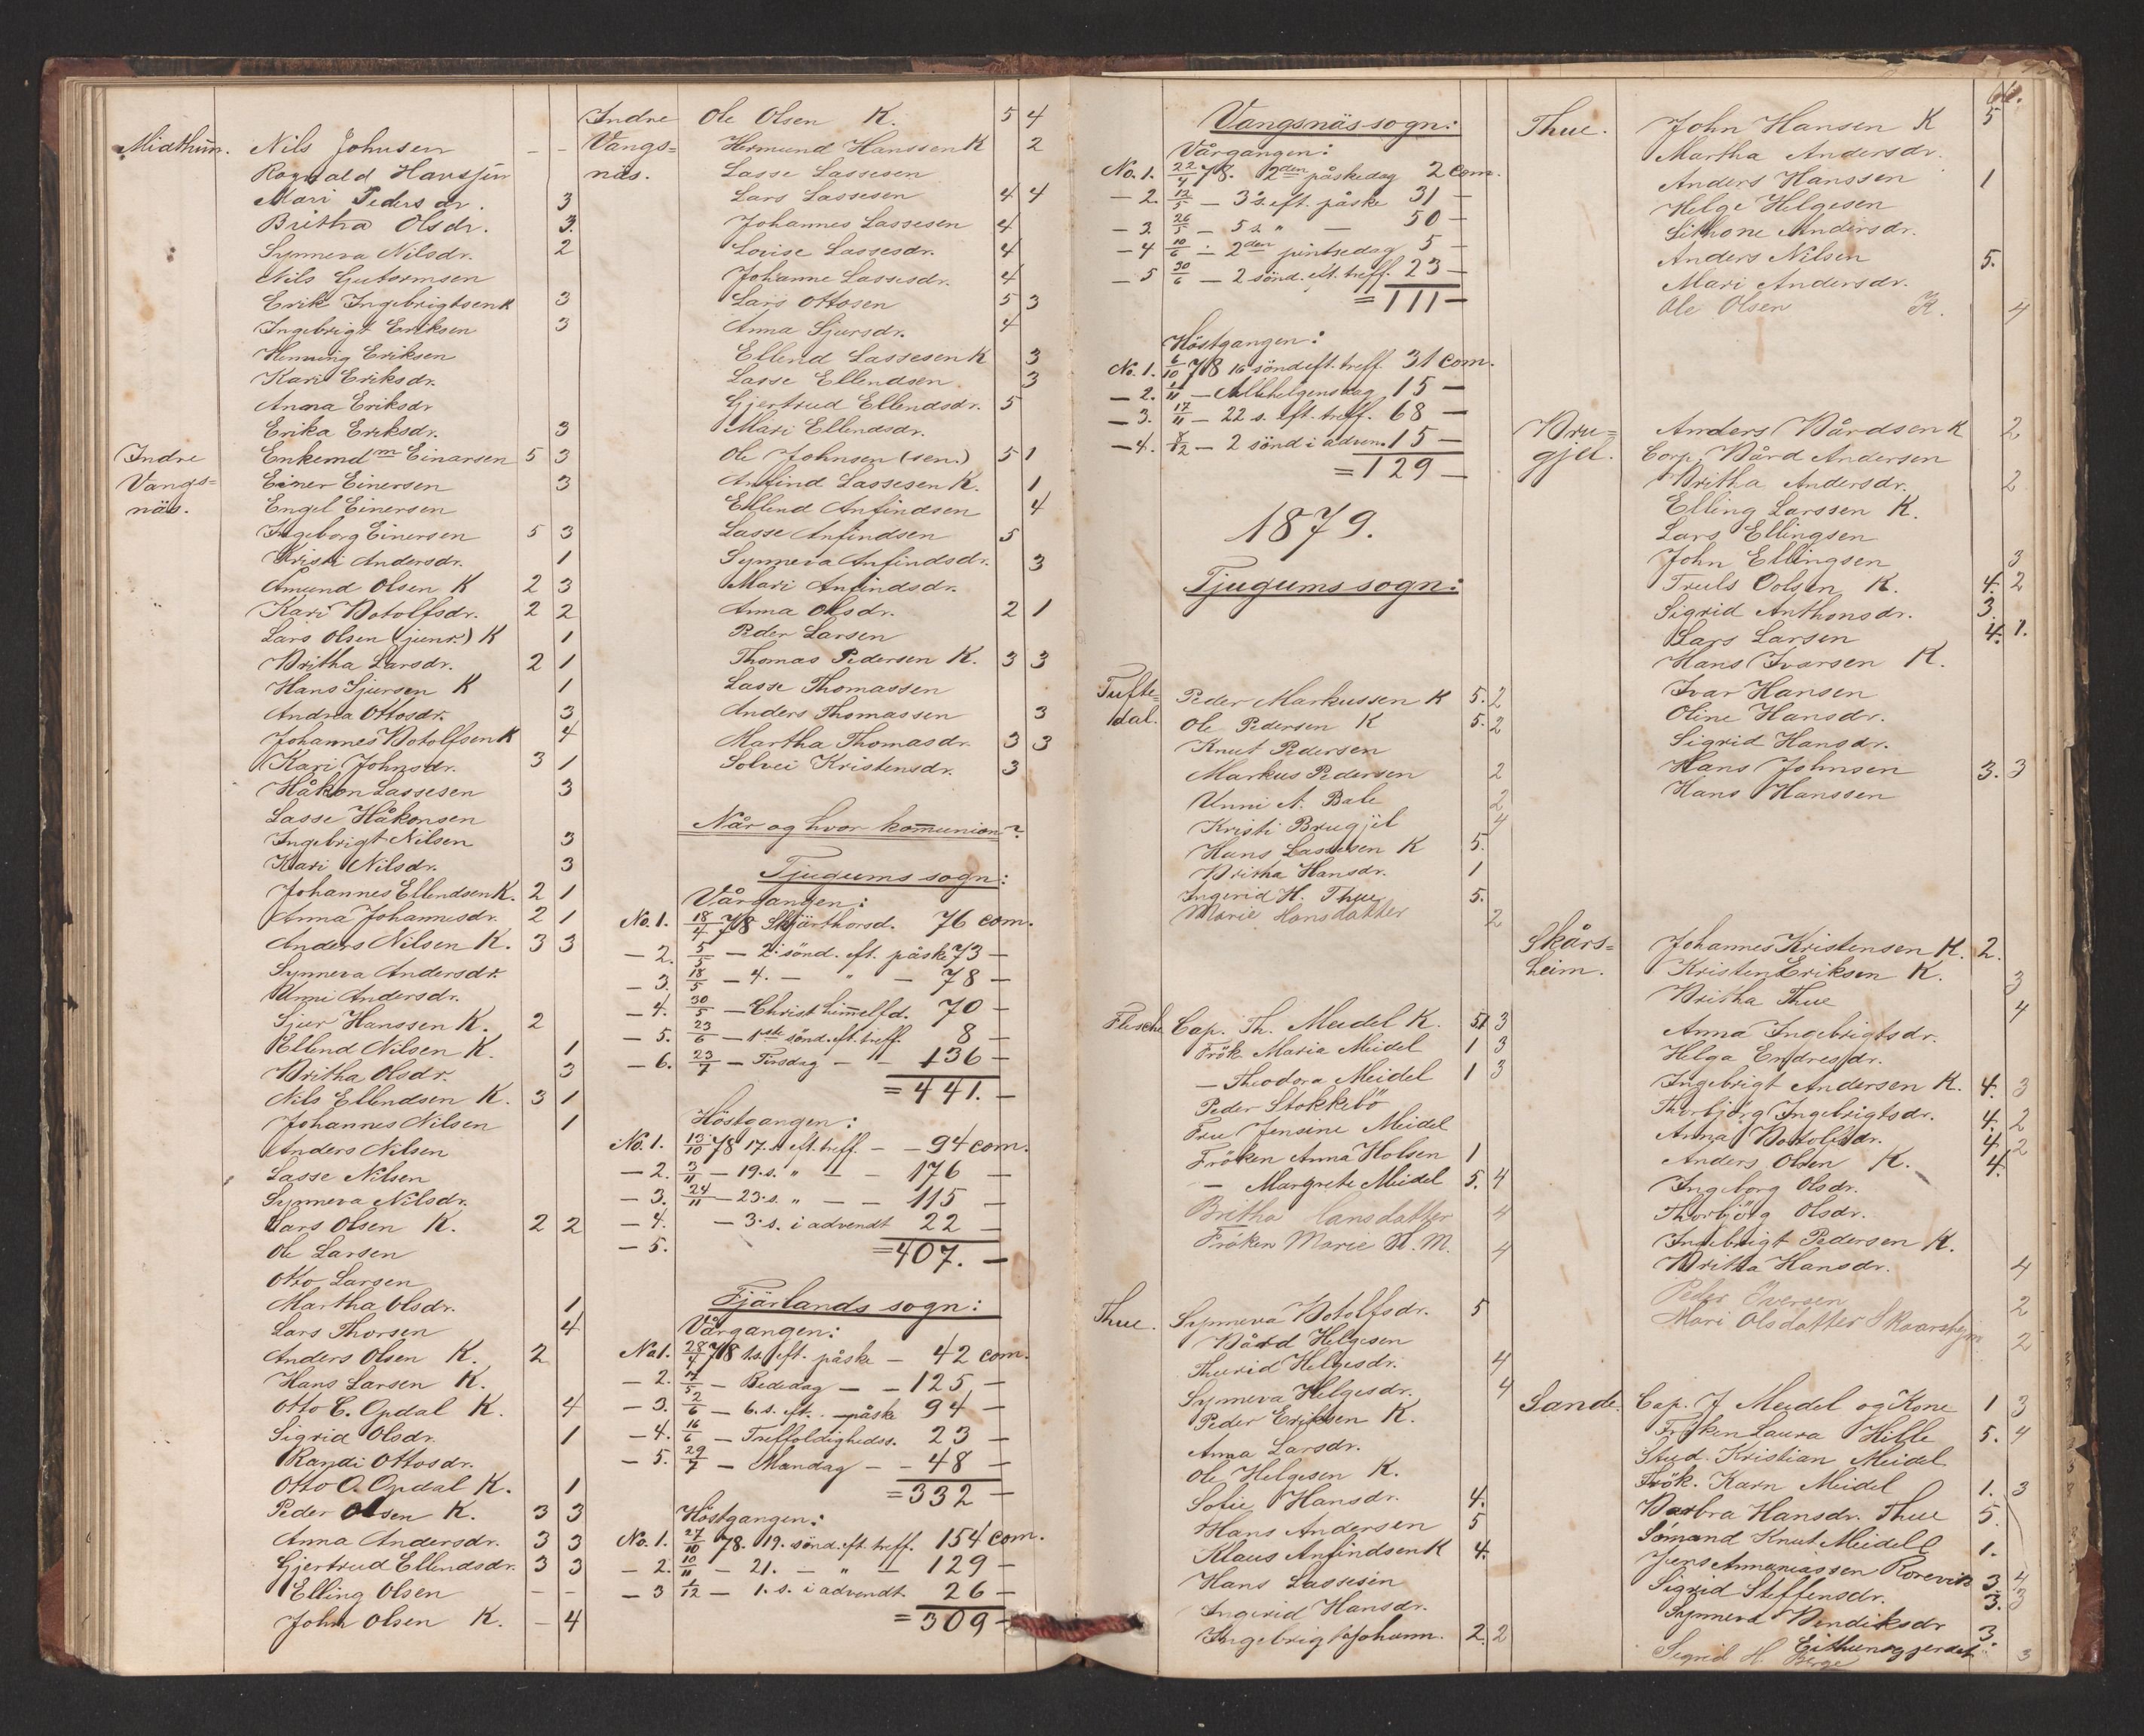 Midthun. Nils Johnsen - -
Rognald Hansson
Mari Pedersdr. 3
Britha Olsdr. 3.
Synneva Nilsdr. 2
Nils Gutormsen
Erik Ingebrigtsen K 3
Ingebrigt Eriksen 3
Henning Eriksen
Kari Eriksdr.
Anna Eriksdr
Erika Eriksdr. 3
Indre Enkemdm Einarsen 5 3
Vangs= Einer Einersen 3
näs. Engel Einersen
Ingeborg Einersen 5 3
Kristi Andersdr. 1
Amund Olsen K 2 3
Kari Botolfsdr. 2 2
Lars Olsen (junr.) K 1
Britha Larsdr. 2 1
Hans Sjursen K 1
Andrea Ottosdr. 3
Johannes Botolfsen K 4
Kari Johnsdr. 3 1
Håkon Lassesen 3
Lasse Håkonsen
Ingebrigt Nilsen 3
Kari Nilsdr. 3
Johannes Ellendsen K. 2 1
Anna Johannesdr. 2 1
Anders Nilsen K. 3 3
Synneva Andersdr.
Unni Andersdr.
Sjur Hanssen K. 2
Ellend Nilsen K. 1
Britha Olsdr. 3
Nils Ellendsen K. 3 1
Johannes Nilsen 1
Anders Nilsen
Lasse Nilsen
Synneva Nilsdr.
Lars Olsen K. 2 2
Ole Larsen
Otto Larsen
Martha Olsdr. 1
Lars Thorsen 4
Anders Olsen K. 2
Hans Larsen K.
Otto C. Opdal K. 4
Sigrid Olsdr. 1
Randi Ottosdr.
Otto O. Opdal K. 1
Peder Olsen K. 3 3
Anna Andersdr. 3 3
Gjertrud Ellendsdr. 3 3
Elling Olsen - -
John Olsen K. - 4
Indre Ole Olsen K. 5 4
Vangs= Hermund Hanssen K 2
näs. Lasse Lassesen
Lars Lassesen 4 4
Johannes Lassesen 4
Lovise Lassesdr. 4
Johanne Lassesdr. 4
Lars Ottosen 5 3
Anna Sjursdr. 4
Ellend Lassesen K 3
Lasse Ellendsen 3
Gjertrud Ellendsdr. 5
Mari Ellendsdr.
Ole Johnsen (sen.) 5 1
Anfind Lassesen K. 1
Ellend Anfindsen 4
Lasse Anfindsen 5
Synneva Anfindsdr. 3
Mari Anfindsdr.
Anna Olsdr. 2 1
Peder Larsen
Thomas Pedersen K. 3 3
Lasse Thomassen
Anders Thomassen 3
Martha Thomasdr. 3 3
Solvei Kristensdr. 3
Når og hvor kommunion?
Tjugums sogn:
Vårgangen:
No. 1. 18/4 78 Skjärthorsd. 76 com.
- 2. 5/5 - 2. sönd. eft. påske 73 -
- 3. 18/5 - 4. - " - 78 -
- 4. 30/5 - Christ himmelfd. 70 -
- 5. 23/6 - 1ste sönd. eft. treff. 8 -
- 6. 23/7 - Tirsdag - - 136 -
= 441. -
Höstgangen:
No. 1. 13/10 78 17. s. eft. treff. - - 94 com.
- 2. 3/11 - 19. s. " - - 176 -
- 3. 24/11 - 23. s. " - - 115 -
- 4. - 3. s. i advendt 22 -
- 5.
= 407. -
Fjärlands sogn:
Vårgangen:
No 1. 28/4 78 1. s. eft. påske - 42 com.
- 2. 17/5 - Bededag - - 125 -
- 3. 2/6 - 6. s. eft. påske 94 -
- 4. 16/6 - Treffoldighedss. 23 -
- 5. 29/7 - Mandag - - 48 -
= 332 -
Höstgangen:
No. 1. 27/10 78. 19. sönd. eft. treff. 154 com.
- 2. 10/11 - 21. - " - 129 -
- 3 1/12 - 1. s. i advendt 26 -
= 309 -
Vangsnäs sogn:
Vårgangen:
No. 1. 22/4 78. 2den påskedag 2 com.
- 2. 12/5 - 3 s. eft. påske 31 -
- 3. 26/5 - 5 s. " - 50 -
- 4 10/6 - 2den pintsedag 5 -
- 5 30/6 - 2 sönd. eft. treff. 23 -
= 111 -
Höstgangen:
No. 1. 6/10 78 16 sönd eft. treff. 31 com.
- 2. 1/11 - Allehelgensdag 15 -
- 3. 17/11 - 22 s. eft. treff. 68 -
- 4. 8/12 - 2 sönd i adven. 15 -
= 129 -
1879.
Tjugums sogn:
Tufte= Peder Markussen K 5. 2
dal. Ole Pedersen K 5. 2
Knut Pedersen
Markus Pedersen 2
Unni A. Bale 2
Kristi Brugjel 4
Hans Lassesen K 5.
Britha Hansdr. 1
Ingerid H. Thue 5.
Marie Hansdatter 2
Flesche Cap. Th. Meidel K. 5 1 3
Frök. Maria Meidel 1 3
- Theodora Meidel 1 3
Peder Stokkebö
Fru Jensine Meidel
Fröken Anna Holsen 1
- Margrete Meidel 5. 4
Britha Hansdatter 4
Fröken Marie N. M. 4
Thue. Synneva Botolfsdr. 5
Bård Helgesen
Thurid Helgesdr. 4
Synneva Helgesdr. 4
Peder Eriksen K.
Anna Larsdr.
Ole Helgesen K.
Sofie Hansdr. 4.
Hans Andersen 5
Klaus Anfindsen K 4.
Hans Lassesen
Ingerid Hansdr.
Ingebrigt Johann. 2. 2
66.
Thue. John Hansen K 5
Martha Andersdr.
Anders Hanssen 1
Helge Helgesen
Simone Andersdr.
Anders Nilsen 5.
Mari Andersdr.
Ole Olsen K. 4
Bru= Anders Bårdsen K 2
gjel. Corp. Bård Andersen
Britha Andersdr. 2
Elling Larssen K.
Lars Ellingsen
John Ellingsen 3
Truls Oolsen K. 4. 2
Sigrid Anthonsdr. 3
Lars Larsen 4. 1.
Hans Ivarsen K.
Ivar Hansen
Oline Hansdr.
Sigrid Hansdr.
Hans Johnsen 3. 3
Hans Hanssen
Skårs= Johannes Kristensen K. 2.
heim. Kristen Eriksen K. 3
Britha Thue 4
Anna Ingebrigtsdr.
Helga Endresdr.
Ingebrigt Andersen K. 4. 3
Thorbjörg Ingebrigtsdr. 4. 2
Anna Botolfsdr. 4 2
Anders Olsen K. 4.
Ingeborg Olsdr.
Thorbjörg Olsdr.
Ingebrigt Pedersen K.
Britha Hansdr. 4
Peder Iversen 2
Mari Olsdatter Skaarshejm 2
Sande. Cap. J Meidel og Kone 1 3
Fröken Laura Hille 5. 4
Stud. Kristian Meidel
Frök. Karn Meidel 1. 3
Barbra Hansdr. Thue 5.
Sömand Knut Meidell 1.
Jens Annaniassen Rorevik 3. 4
Sigrid Steffensdr. 3. 3
Synneva Bendiksdr 3.
Eithunsgjerdet
Sigrid H. Berge 3